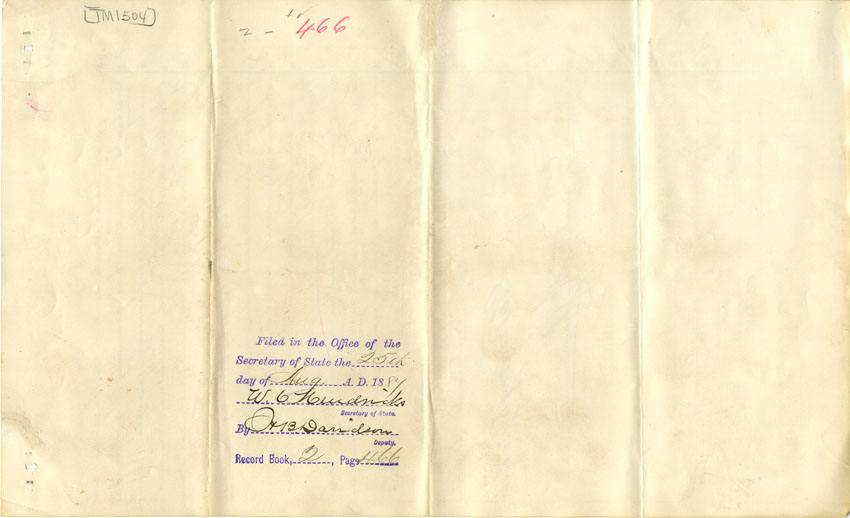 TM1504
2 - 466
Filed in the Office of the
Secretary of State the 25th
day of Aug. A. D. 1887
W. C. Hendricks
Secretary of State.
By H B Davidson
Deputy.
Record Book, 2, Page 466